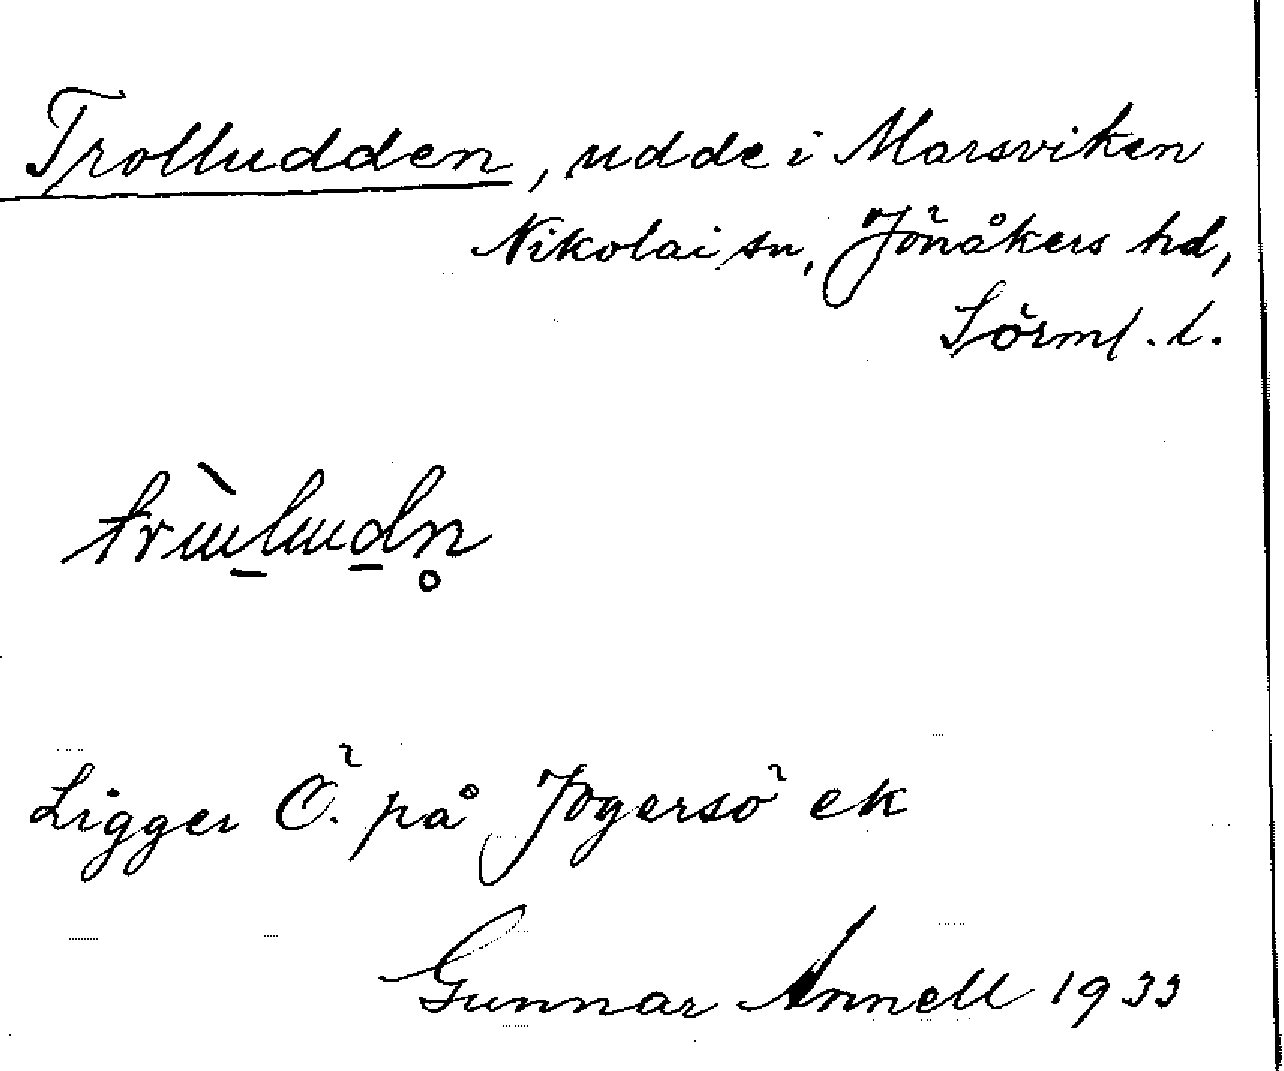 Trolludden, udde i Marsviken
Nikolai sn, Jönåkers hd,
Sörml. l.
Ligger Ö. på Jogersö ek
Gunnar Annell 1933